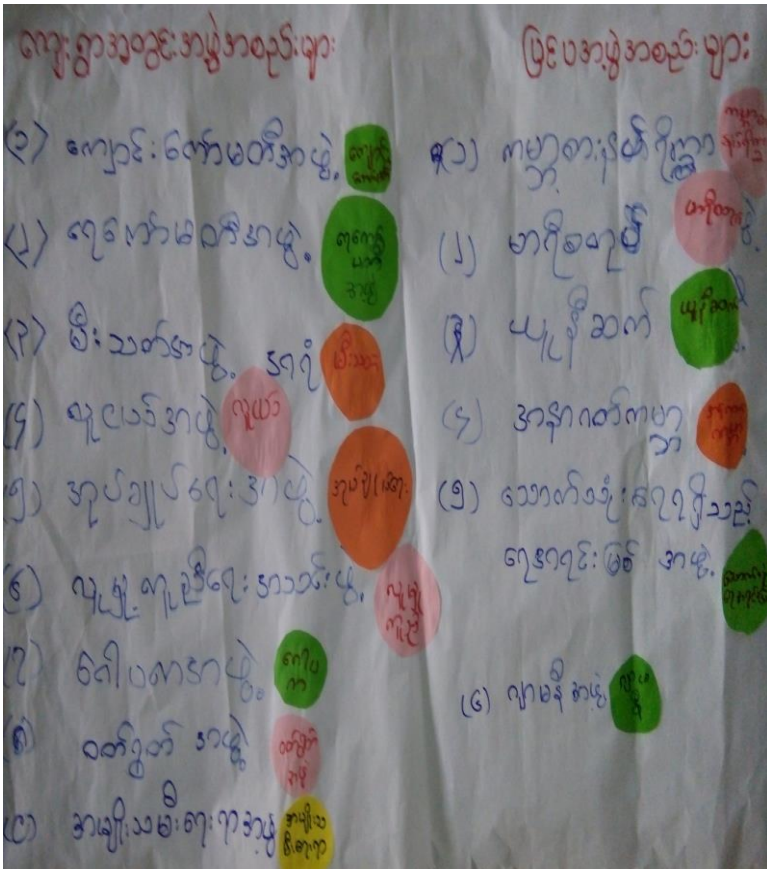 ကျေးရွာအတွင်းအဖွဲ့အစည်းများ
(၁) ကျောင်းကော်မတီအဖွဲ့
(၂) ရေကော်မတီအဖွဲ့
ရေကော်
မတီ
အဖွဲ့
(၃) မီးသတ်အဖွဲ့ အရံ
မီးသတ်
(၄) လူငယ်အဖွဲ့
လူငယ်
(၅) အုပ်ချုပ်ရေးအဖွဲ့
အုပ်ချုပ်ရေး
(၆) လူမှုကူညီရေးအသင်းဖွဲ့
လူမှု
ကူညီ
(၇) ဂေါပကအဖွဲ့
ဂေါပ
က
(၈) ဝတ်ရွတ်အဖွဲ့
ဝတ်ရွတ်
အဖွဲ့
(၉) အမျိုးသမီးရေးရာအဖွဲ့
အမျိုးသ
မီးရေးရာ
ပြင်ပအဖွဲ့အစည်းများ
(၁) ကမ္ဘာ့စားနပ်ရိက္ခာ
(၂) မာရီစတုပ်
(၃) ယူနီဆက်
ယူနီဆက်
(၄) အနာဂတ်ကမ္ဘာ
(၅) သောက်သုံးရေရရှိသည့်
ရေအရင်းမြစ် အဖွဲ့
(၆) ဂျာမနီအဖွဲ့